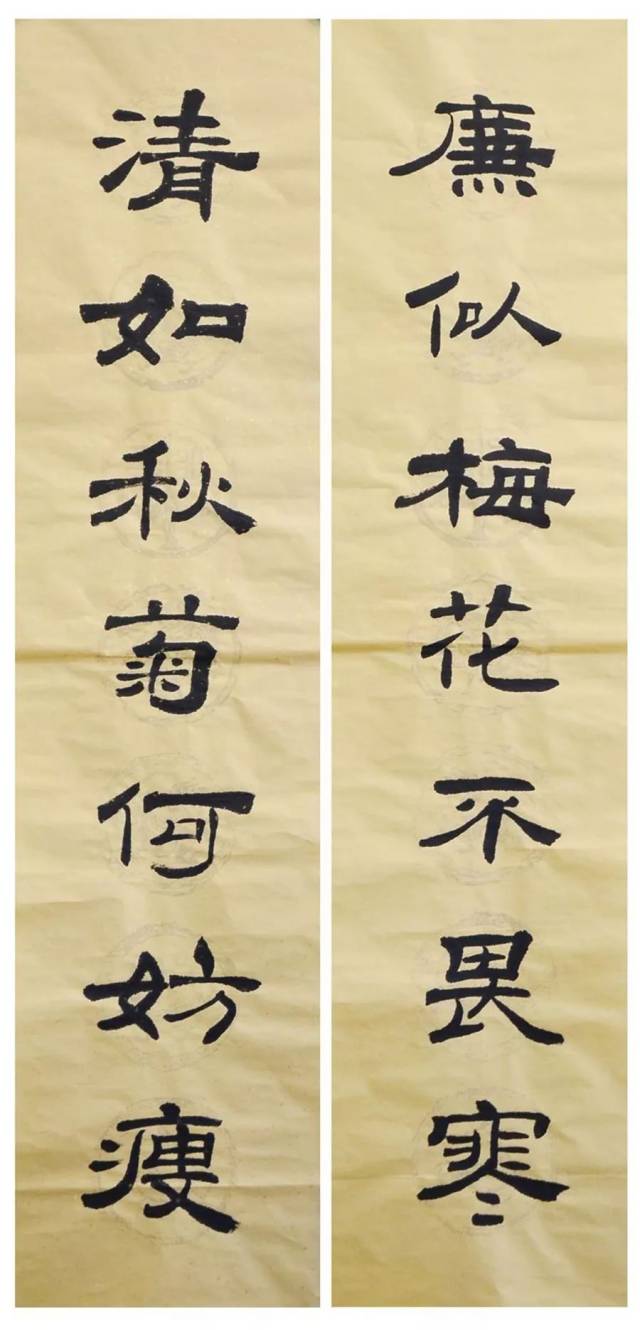 廉似梅花不畏寒
清如秋菊何妨瘦